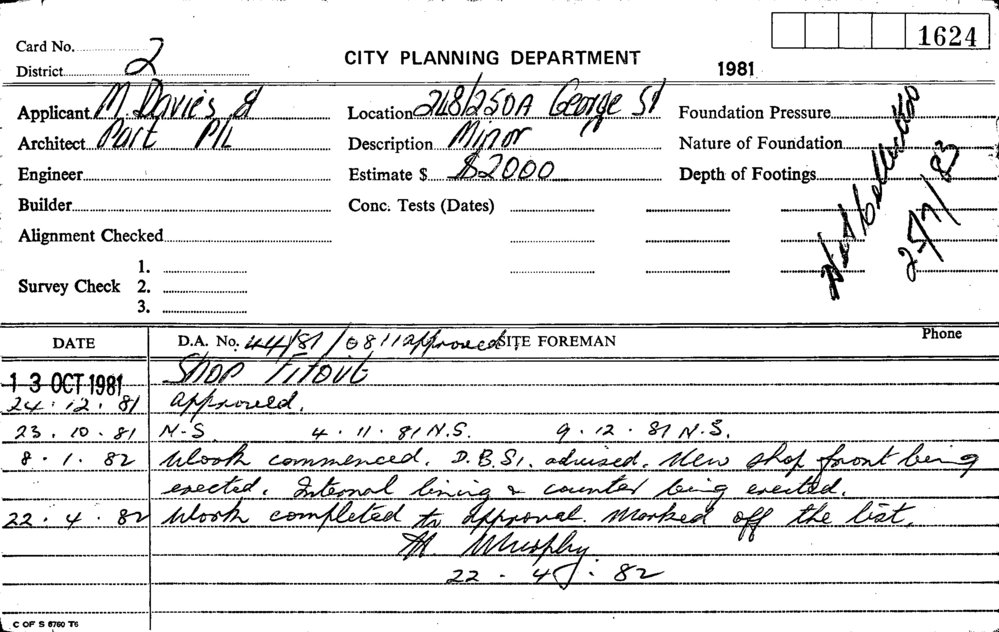 1624
Card No. 2
CITY PLANNING DEPARTMENT
District
1981
Applicant M. Davies &
Location 248/250A George St
Foundation Pressure
Architect Part P/L
Description Minor
Nature of Foundation
Engineer
Estimate $ $2000
Depth of Footings
Builder
Conc. Tests (Dates)
25/7/83
Alignment Checked
1.
Survey Check 2.
3.
DATE
D.A. No. 44/81/0811 approved SITE FOREMAN
Phone
13 OCT 1981 Shop Fitout
24.12.81 approved.
23.10.81 N.S. 4.11.81 N.S. 9.12.81 N.S.
8.1.82 Work commenced. D.B.S. advised. New shop front being
erected. Internal lining & counter being erected.
22.4.82 Work completed to approval. Marked off the list.
M. Murphy
22.4.82
C OF S 6760 T6